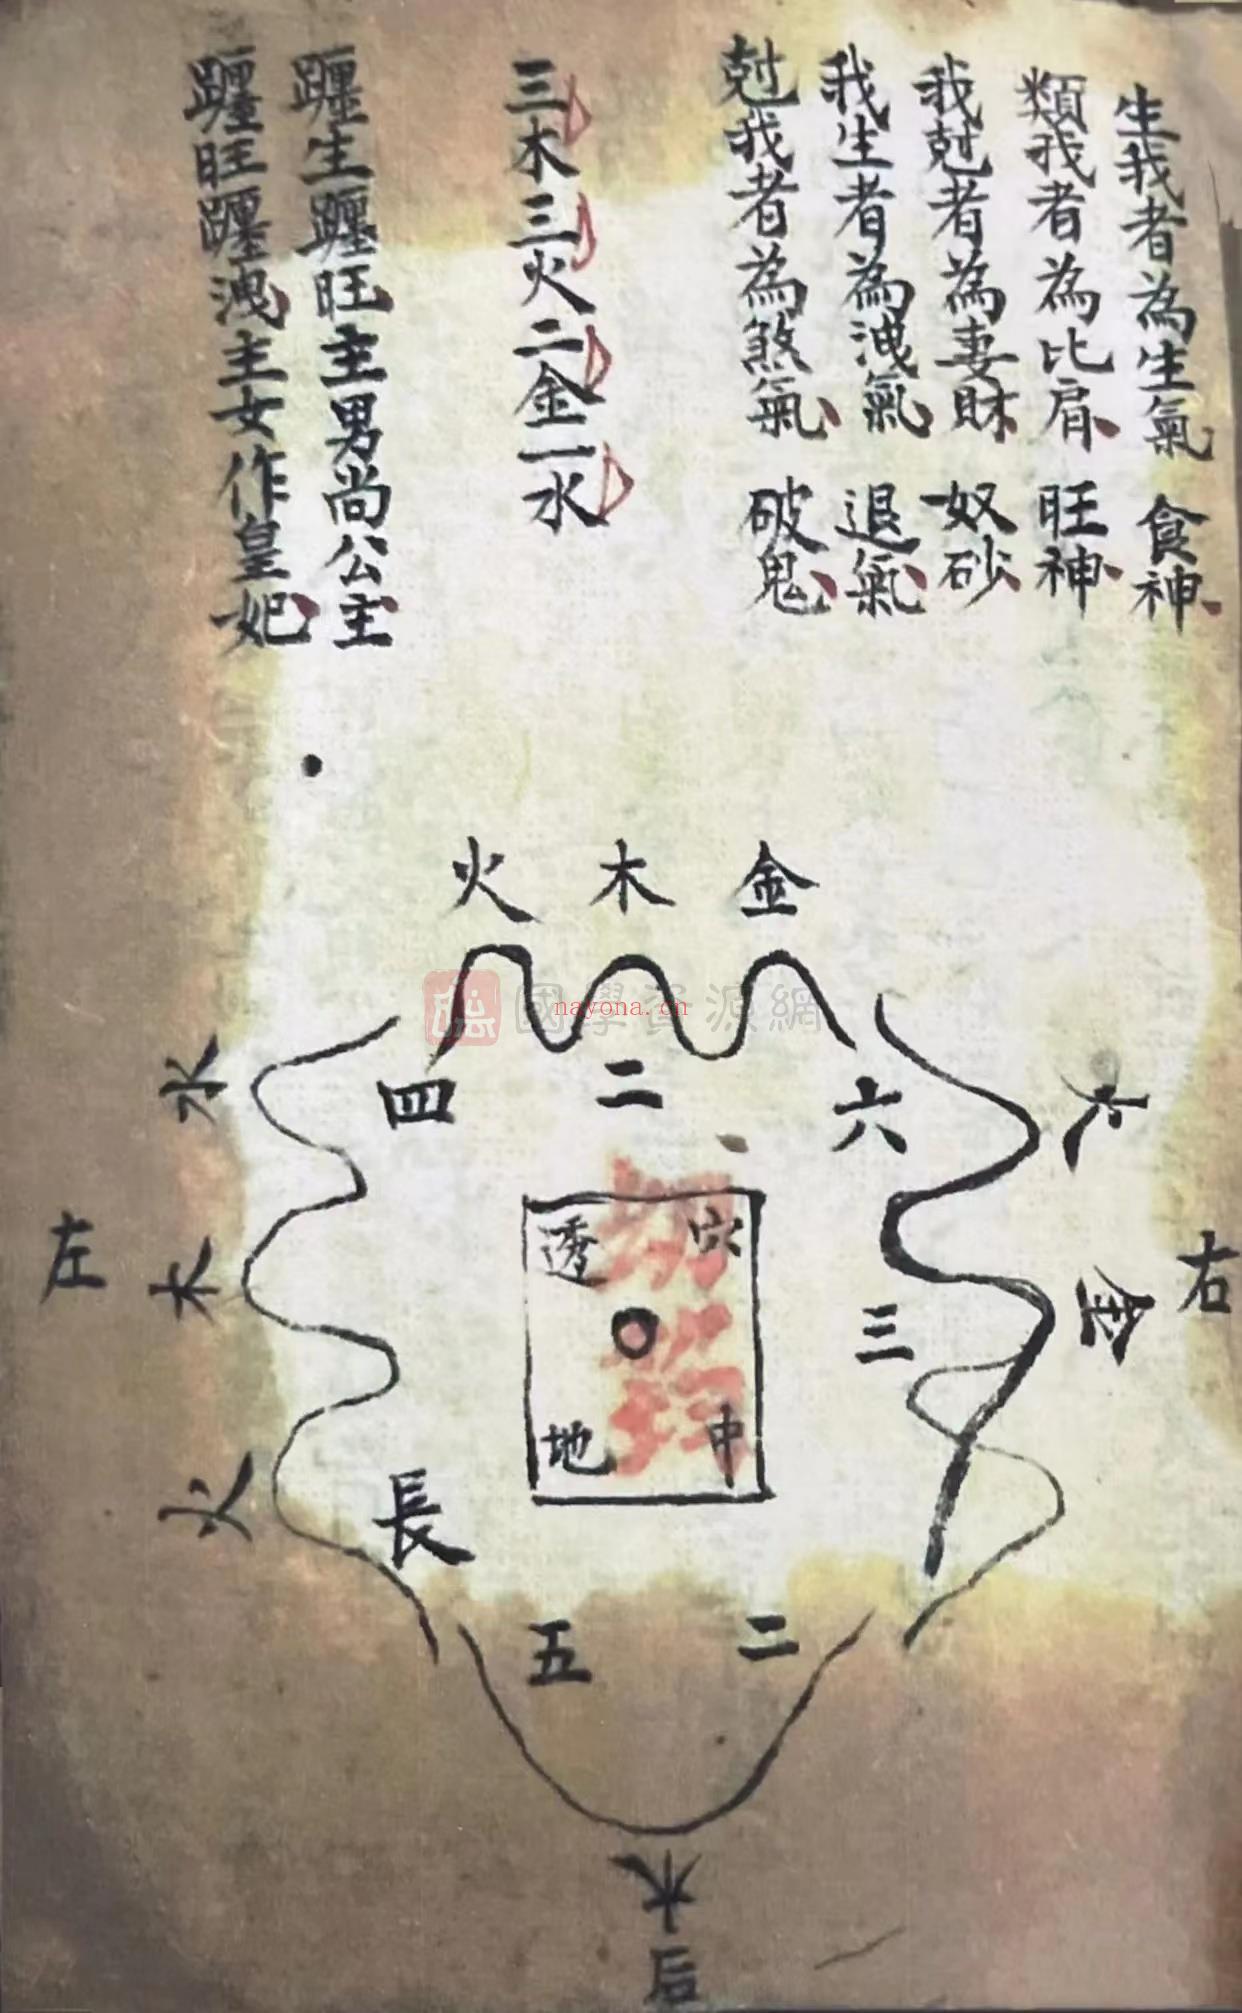 生我者為生氣 食神
類我者為比肩 旺神
我尅者為妻財 奴砂
我生者為洩氣 退氣
尅我者為煞氣 破鬼
三木三火二金一水
躔生躔旺主男尚公主
躔旺躔洩主女作皇妃
火 木 金
國學資源網
nayona.cn
四 二 六
水
木
火
左
火
金
右
三
長
透 穴
地 中
五 二
木